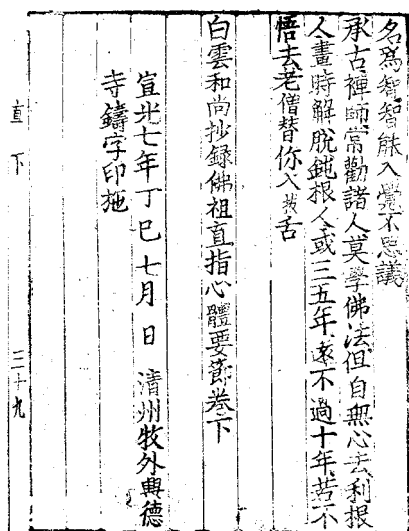 名爲智智能入覺不思議
承古禪師常勸諸人莫學佛法但自無心去利根
人晝時解脫鈍根人或三五年遠不過十年若不
悟去老僧替你入拔舌
白雲和尚抄錄佛祖直指心體要節卷下
宣光七年丁巳七月 日 清州牧外興德
寺鑄字印施
直下 三十九